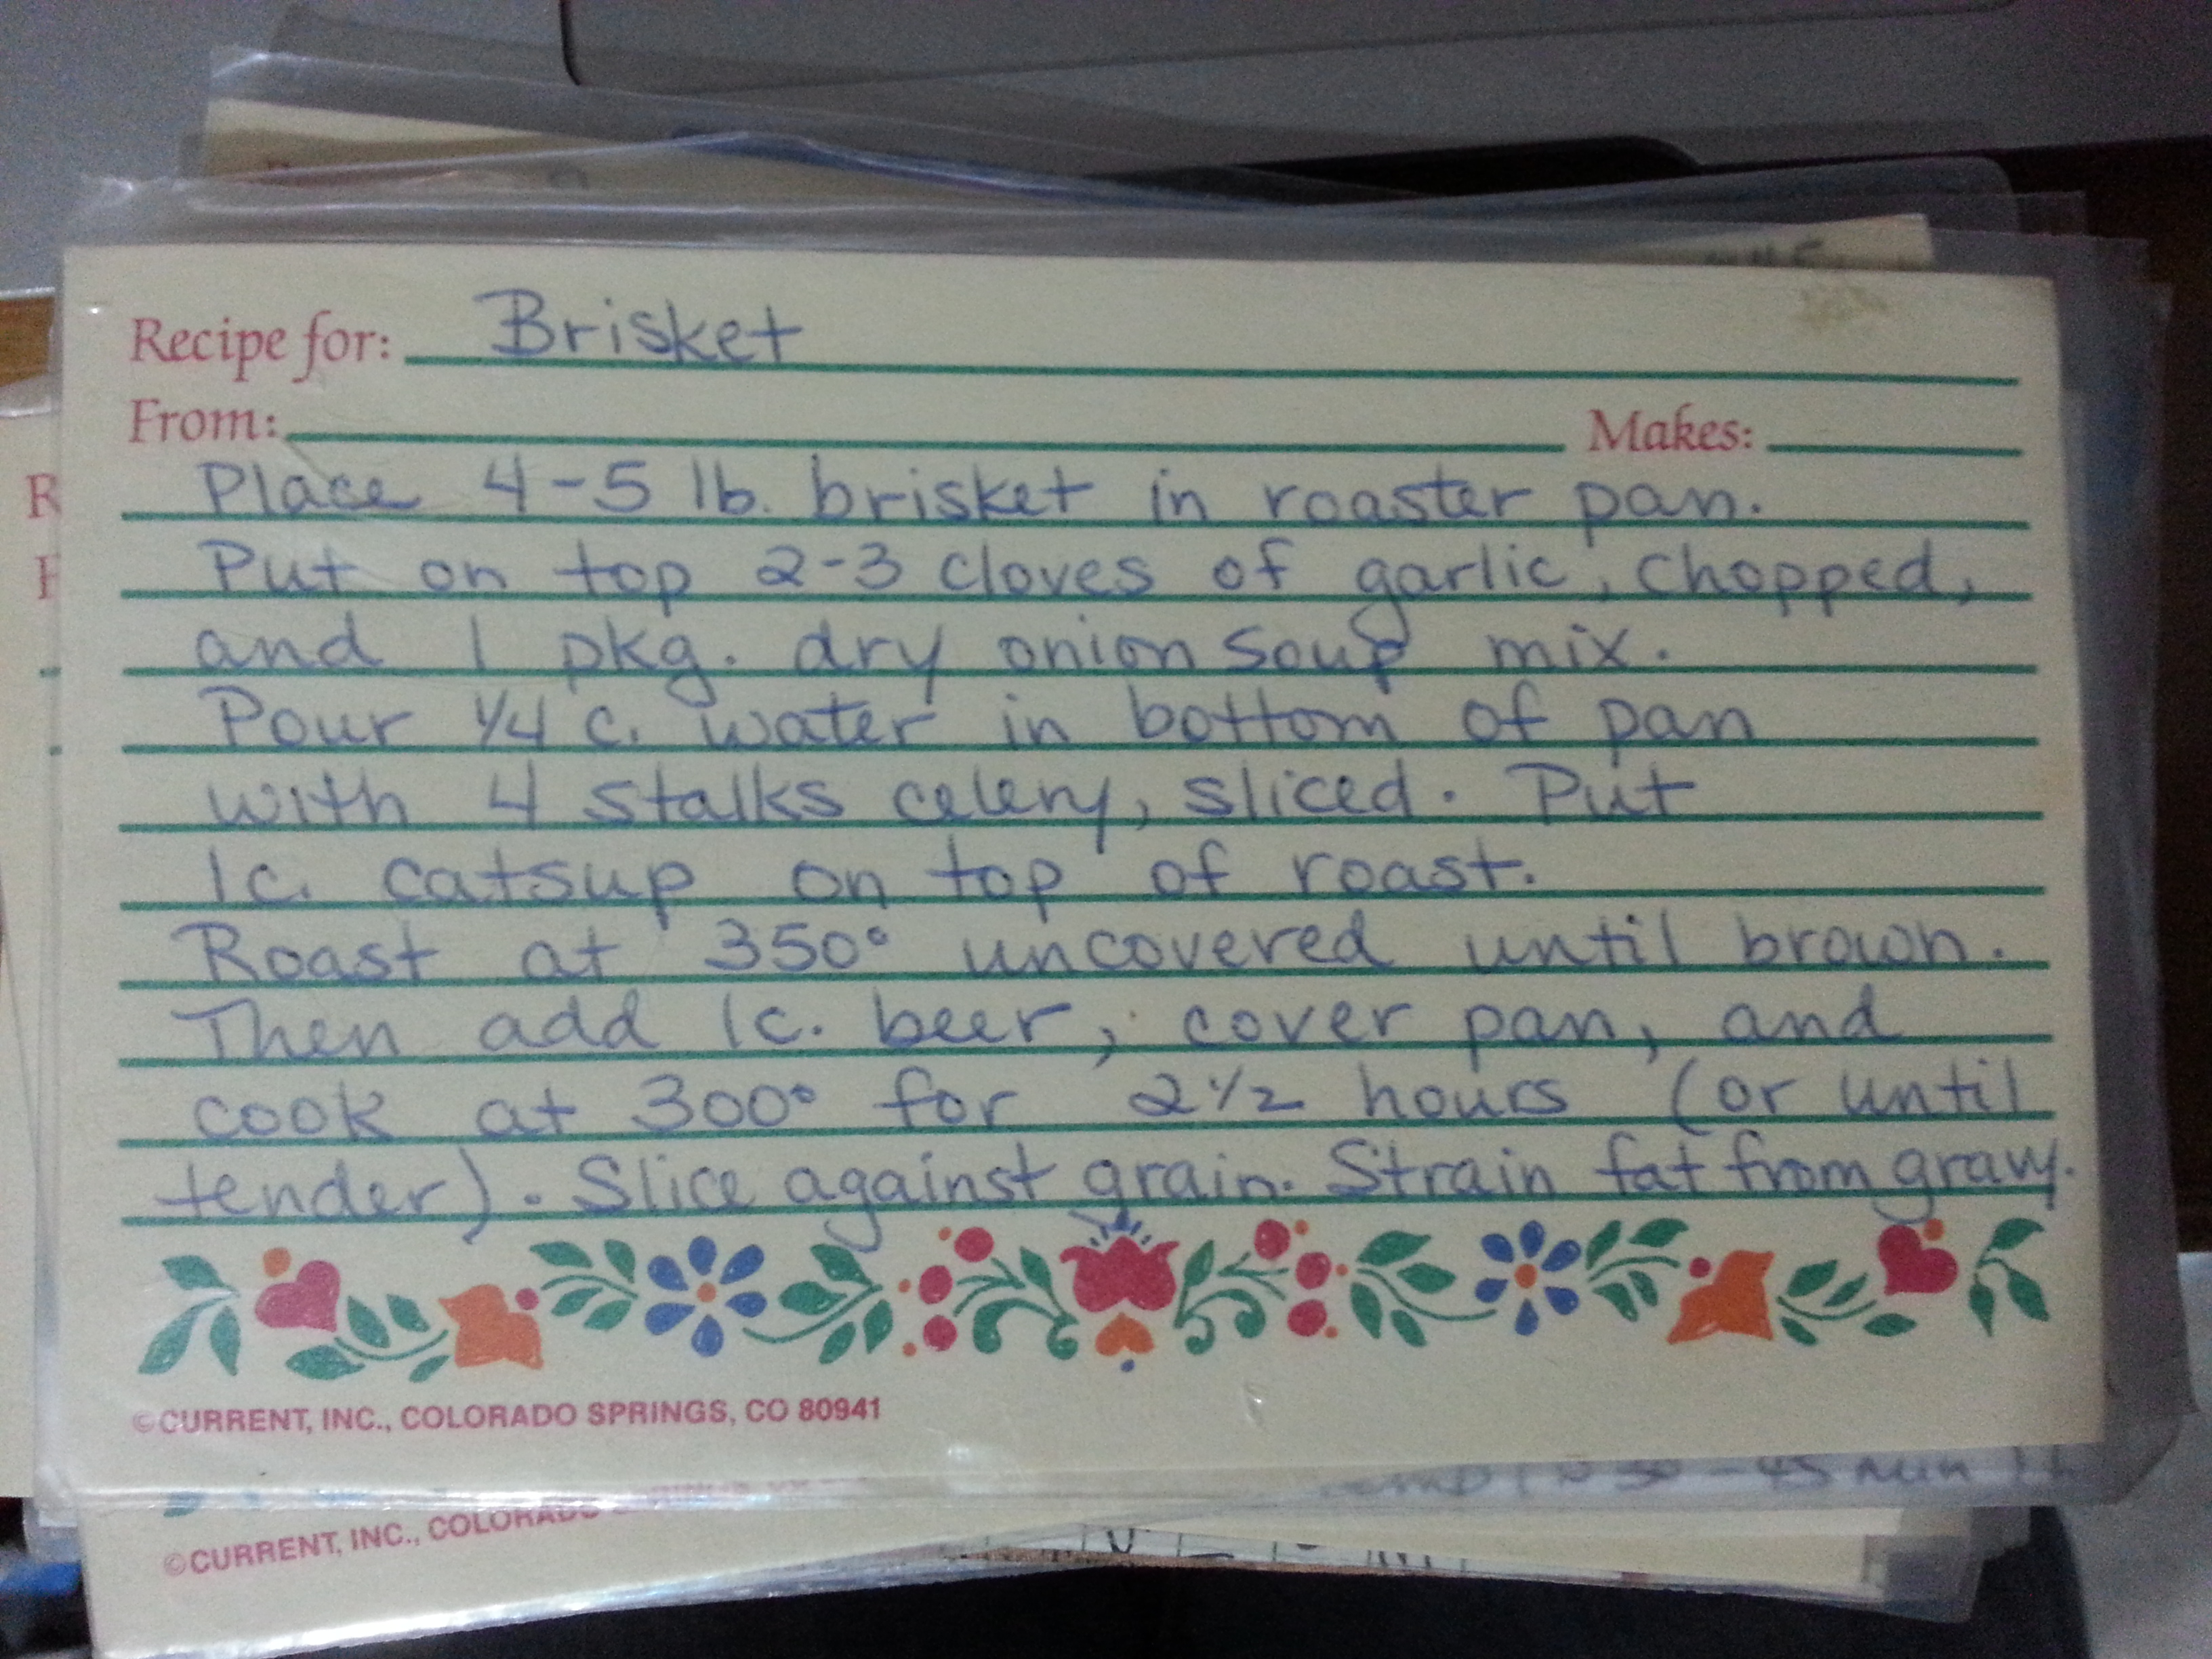 Recipe for: Brisket
From: Makes:
Place 4-5 lb. brisket in roaster pan.
Put on top 2-3 cloves of garlic, chopped,
and 1 pkg. dry onion soup mix.
Pour 1/4 c. water in bottom of pan
with 4 stalks celery, sliced. Put
1c. catsup on top of roast.
Roast at 350° uncovered until brown.
Then add 1c. beer, cover pan, and
cook at 300° for 2 1/2 hours (or until
tender). Slice against grain. Strain fat from gravy.
©CURRENT, INC., COLORADO SPRINGS, CO 80941
©CURRENT, INC., COLORADO